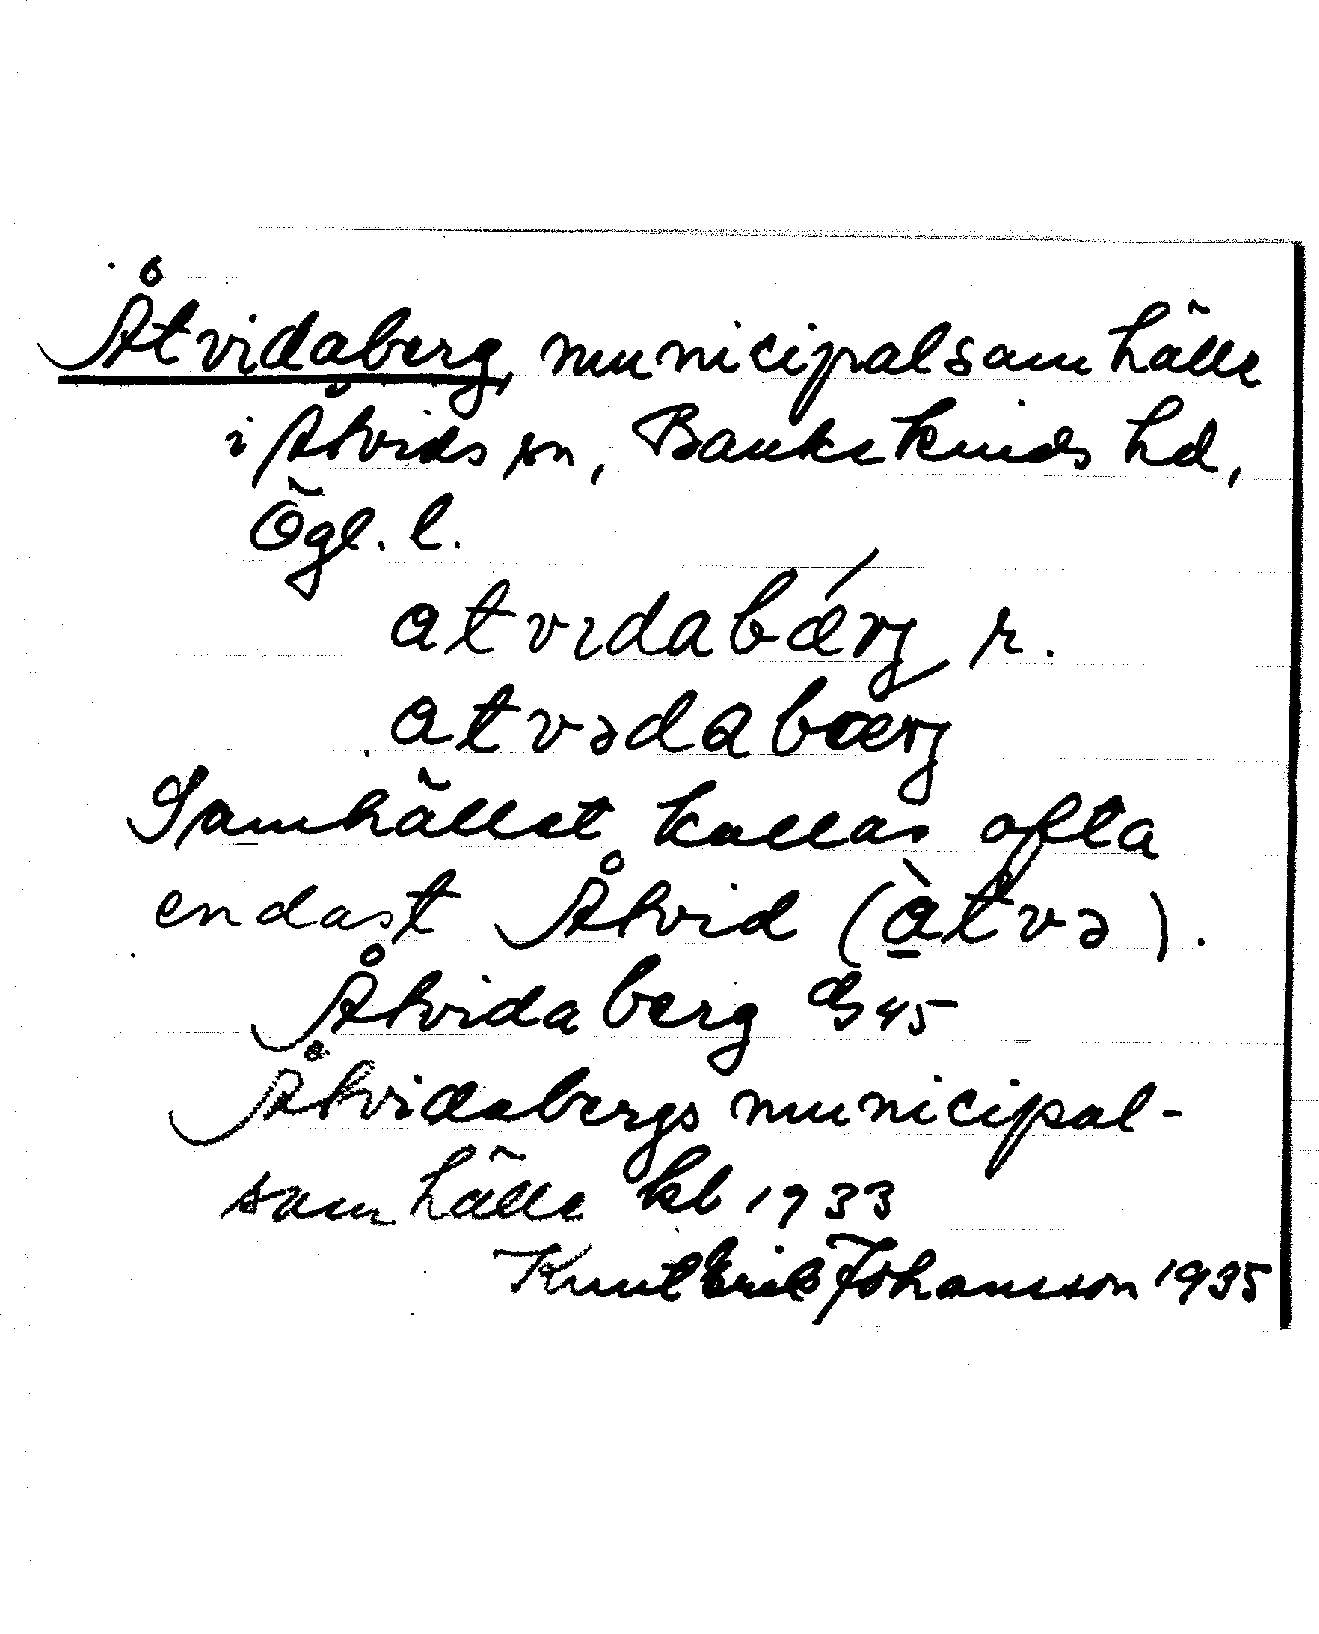 Åtvidaberg, municipalsamhälle
i Åtvids sn, Bankekinds hd,
Ögl. l.
atvıdabǽrj r.
atvədabærj
Samhället kallas ofta
endast Åtvid (àtvə).
Åtvidaberg GS 45
Åtvidabergs municipal-
samhälle kb 1933
Knut Erik Johansson 1935